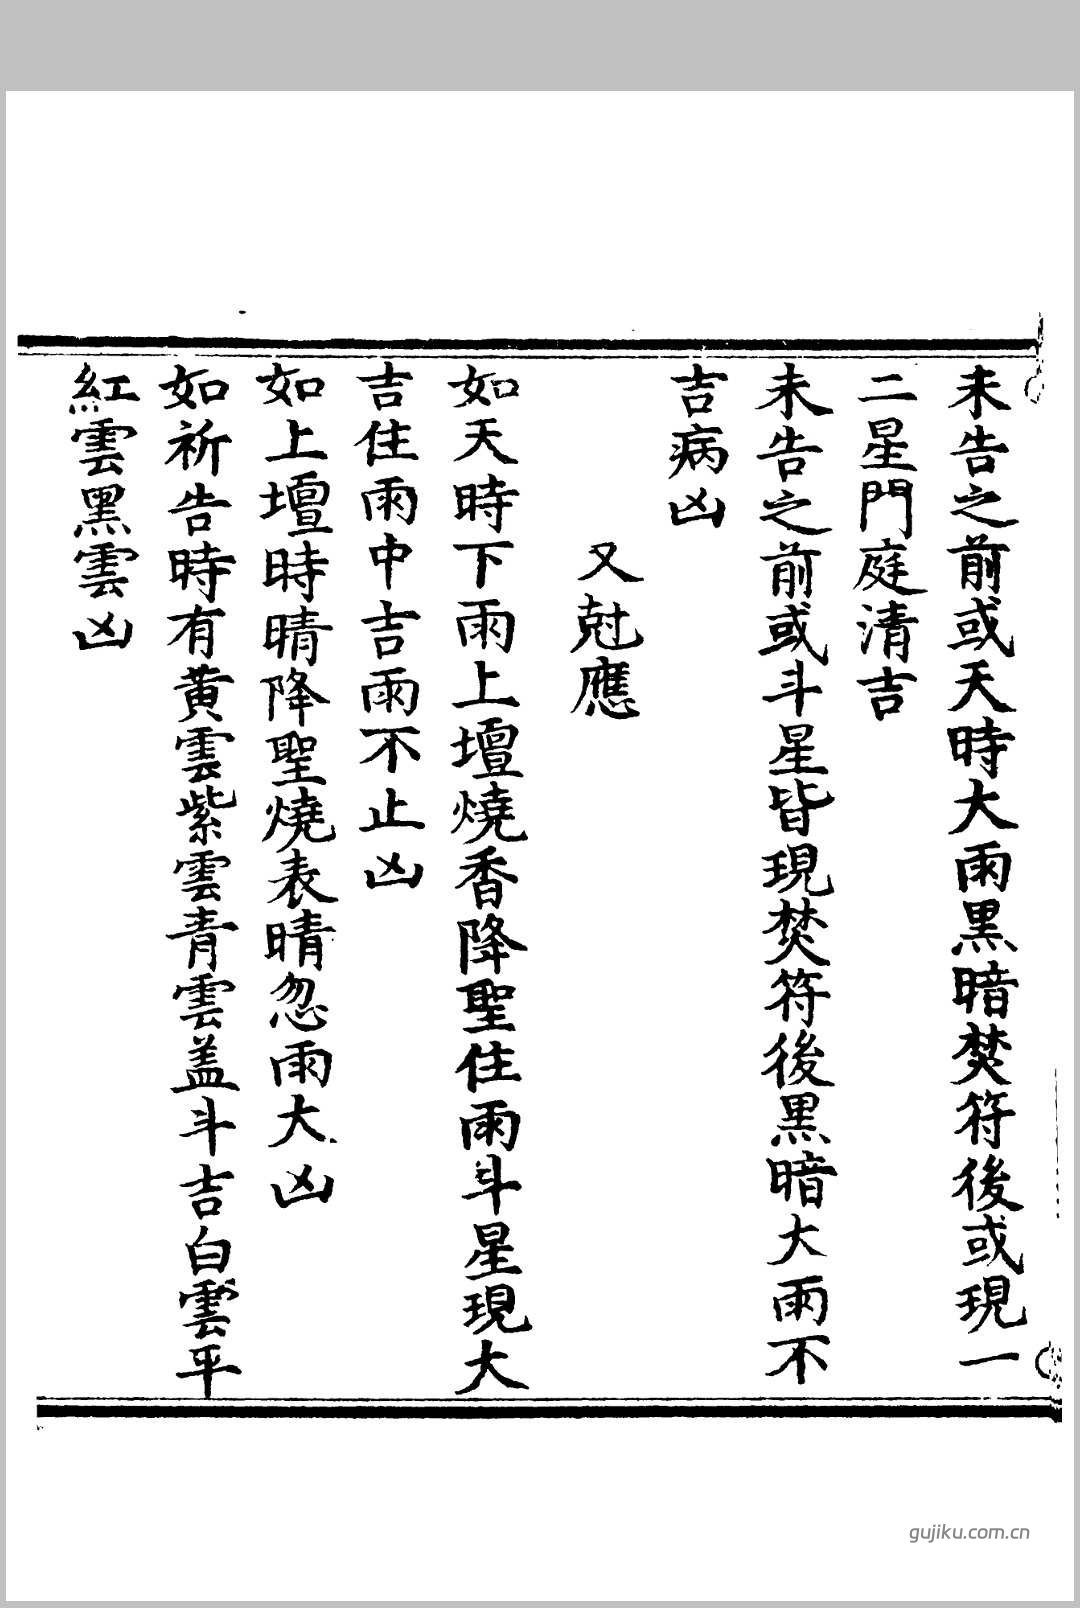 未告之前或天時大雨黒暗焚符後或現一
二星門庭清吉
未告之前或斗星皆現焚符後黒暗大雨不
吉病凶
又尅應
如天時下雨上壇燒香降聖住雨斗星現大
吉住雨中吉雨不止凶
如上壇時晴降聖燒表晴忽雨大凶
如祈告時有黄雲紫雲青雲盖斗吉白雲平
紅雲黒雲凶
gujiku.com.cn